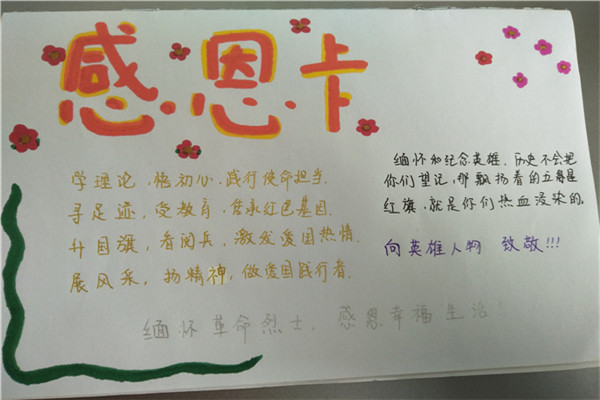 感·恩·卡
学理论，悟初心，践行使命担当.
寻足迹，受教育，传承红色基因.
升国旗，看阅兵，激发爱国热情.
展风采，扬精神，做爱国践行者.
缅怀和纪念英雄，历史不会把
你们望记，那飘扬着的五星
红旗，就是你们热血浸染的。
向英雄人物 致敬!!!
缅怀革命烈士，感恩幸福生活